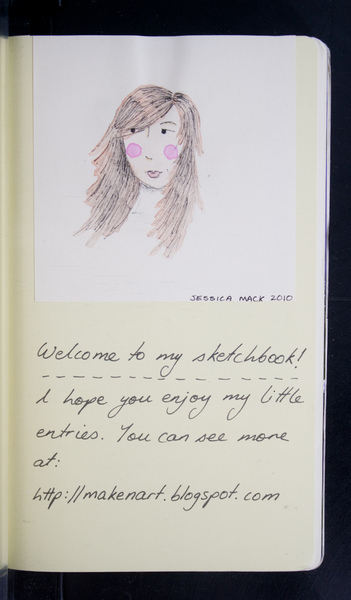 JESSICA MACK 2010
Welcome to my sketchbook!
I hope you enjoy my little
entries. You can see more
at:
http://makenart.blogspot.com